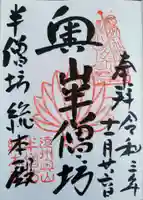 奉拝 令和三年
十一月廿六日
奥山半僧坊
半僧坊総本殿